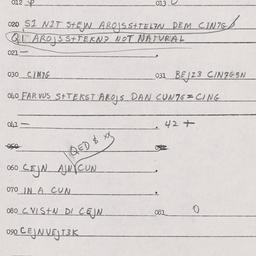 012 φ 013 0
020 SI NIT S+EJN AROJSS+TEK7N DEM CIN7G
Q1 AROJSS+TEKN7 NOT NATURAL
021 — .
030 CIN7G 031 BEJZ3 CIN7G9N
040 FARVUS S+TEKST AROJS DAN CUN7G=CING
041 — . 42 +
QED $ xx
060 CEJN AJN CUN .
070 IN A CUN
080 CVIS+N DI CEJN 081 0
090 CEJNVEJT3K